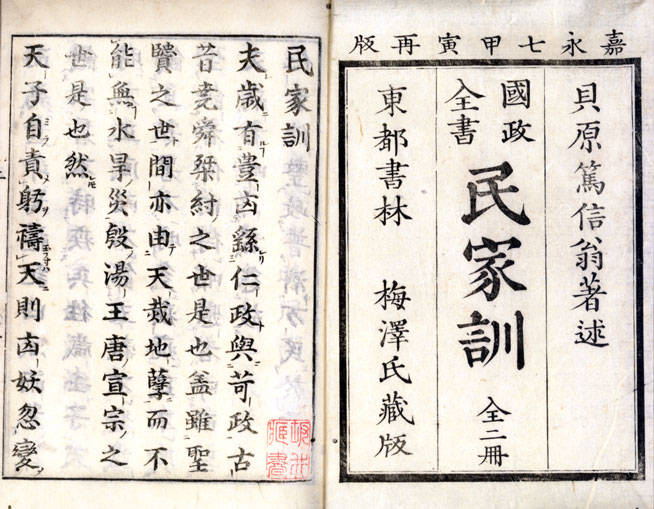 嘉永七甲寅再版
貝原篤信翁著述
國政
全書
民家訓
全二冊
東都書林 梅澤氏藏版
民家訓
夫歲有豊凶繇仁政與苛政古
昔堯舜桀紂之世是也盖雖聖
賢之世間亦由天烖地孽而不
能無水旱災殷湯王唐宣宗之
世是也然
天子自責躬禱天則凶妖忽變